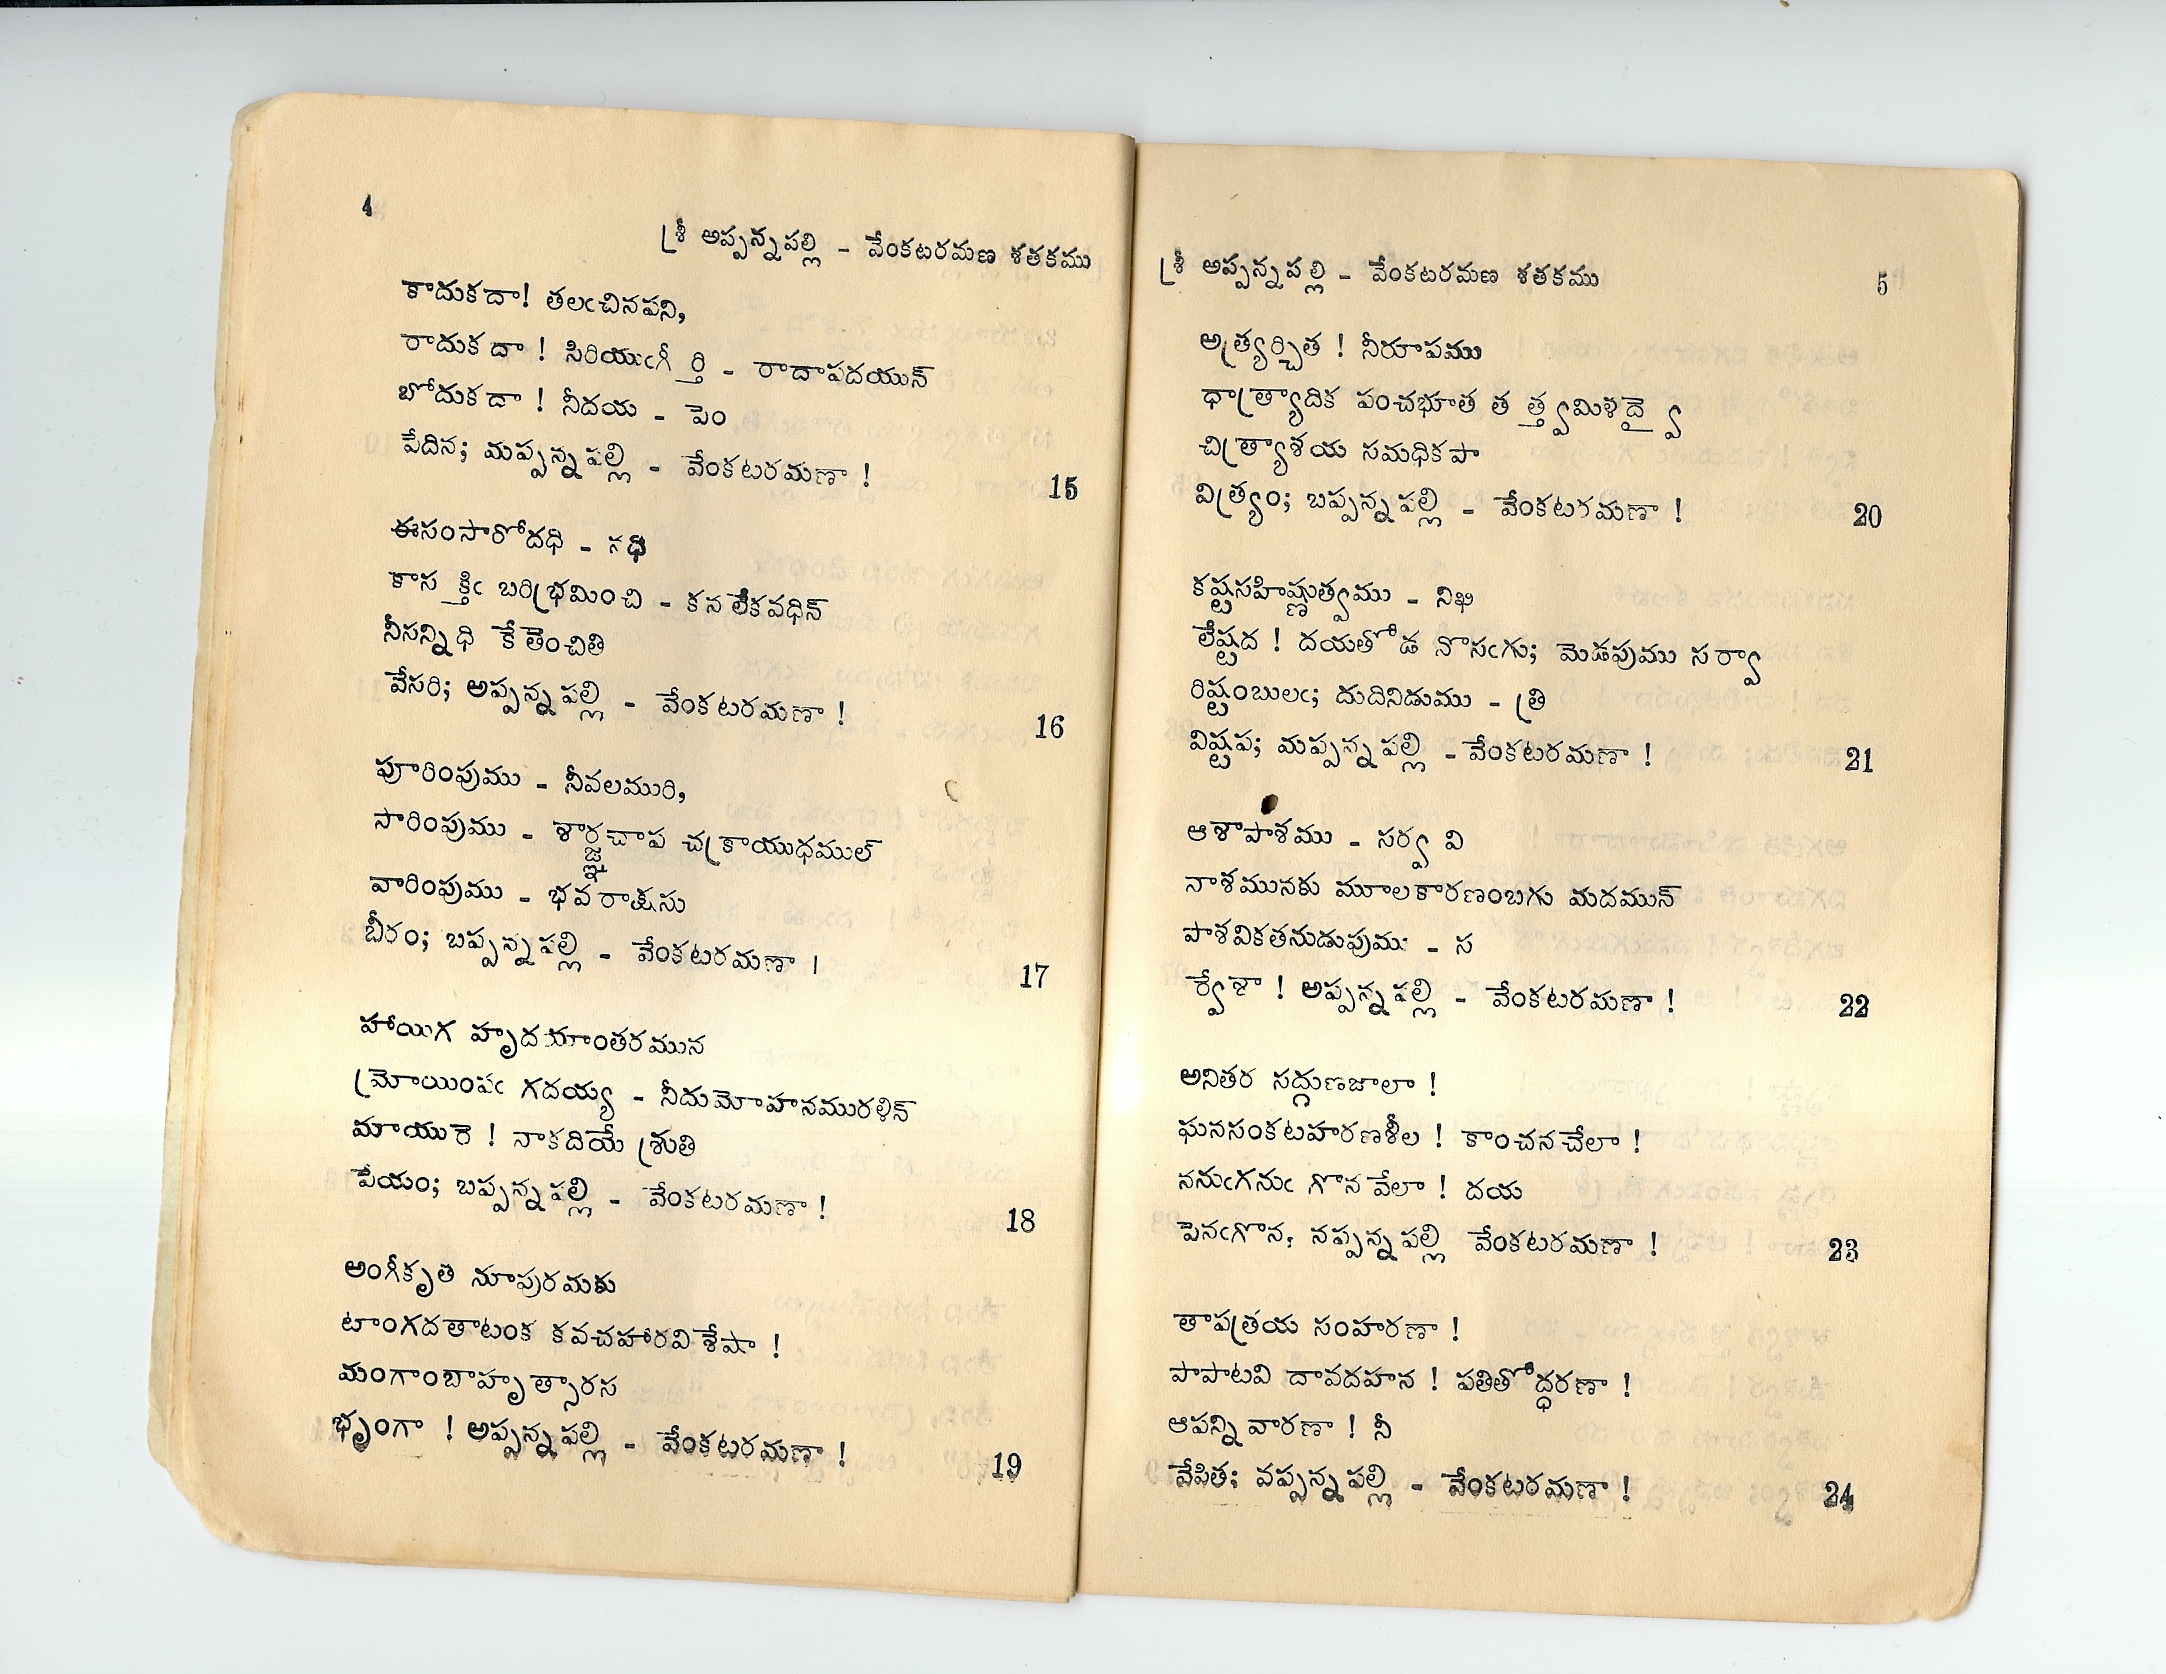 4
శ్రీ అప్పన్నపల్లి - వేంకటరమణ శతకము
కాదుకదా! తలఁచినపని,
రాదుకదా ! సిరియుఁగీర్తి - రాదాపదయున్
బోదుకదా ! నీదయ - పెం
పేదిన; మప్పన్నపల్లి - వేంకటరమణా !
15
ఈసంసారోదధి - నధి
కాసక్తిఁ బరిభ్రమించి - కనలేకవధిన్
నీసన్నిధి కేతెంచితి
వేసరి; అప్పన్నపల్లి - వేంకటరమణా !
16
పూరింపుము - నీవలమురి,
సారింపుము - శార్ఙ్గచాప చక్రాయుధముల్
వారింపుము - భవరాక్షసు
బీరం; బప్పన్నపల్లి - వేంకటరమణా !
17
హాయిగ హృదయాంతరమున
మ్రోయింపఁ గదయ్య - నీదుమోహనమురళిన్
మాయురె ! నాకదియే శ్రుతి
పేయం; బప్పన్నపల్లి - వేంకటరమణా !
18
అంగీకృత నూపురమకు
టాంగదతాటంక కవచహారవిశేషా !
మంగాంబాహృత్సారస
భృంగా ! అప్పన్నపల్లి - వేంకటరమణా !
19
శ్రీ అప్పన్నపల్లి - వేంకటరమణ శతకము
5
అత్ర్యర్చిత ! నీరూపము
ధాత్ర్యాదిక పంచభూత తత్త్వమిళద్వై
చిత్ర్యాశయ సమధికపా
విత్ర్యం; బప్పన్నపల్లి - వేంకటరమణా !
20
కష్టసహిష్ణుత్వము - నిఖి
లేష్టద ! దయతోడ నొసఁగు; మెడపుము సర్వా
రిష్టంబులఁ; దుదినిడుము - త్రి
విష్టప; మప్పన్నపల్లి - వేంకటరమణా !
21
ఆశాపాశము - సర్వ వి
నాశమునకు మూలకారణంబగు మదమున్
పాశవికతనుడుపుము - స
ర్వేశా ! అప్పన్నపల్లి - వేంకటరమణా !
22
అనితర సద్గుణజాలా !
ఘనసంకటహరణశీల ! కాంచనచేలా !
ననుఁగనుఁ గొనవేలా ! దయ
పెనఁగొన; నప్పన్నపల్లి వేంకటరమణా !
23
తాపత్రయ సంహరణా !
పాపాటవి దావదహన ! పతితోద్ధరణా !
ఆపన్నివారణా ! నీ
వేపిత; వప్పన్నపల్లి - వేంకటరమణా !
24